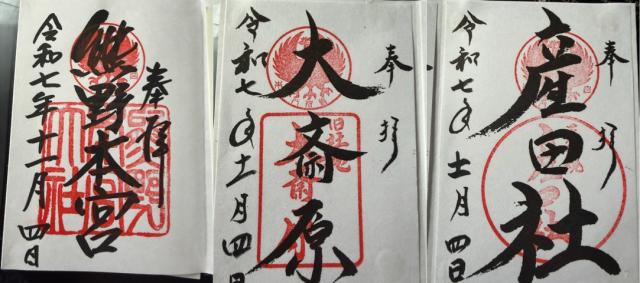 奉拝
熊野本宮
令和七年十一月四日
奉拝
大斎原
令和七年十一月四日
奉拝
産田社
令和七年十一月四日